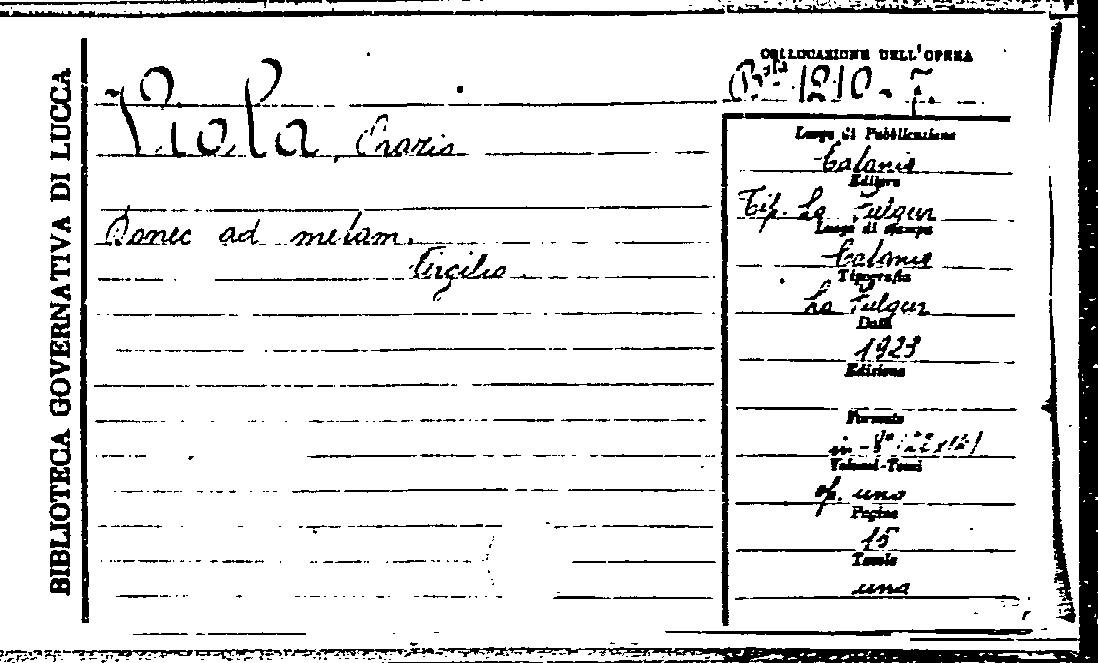 BIBLIOTECA GOVERNATIVA DI LUCCA
COLLOCAZIONE DELL'OPERA
Bta 1210-7.
Viola, Orazio
Donec ad metam.
Virgilio
Luogo di Pubblicazione
Catania
Editore
Tip. La Fulgur
Luogo di stampa
Catania
Tipografia
La Fulgur
Data
1923
Edizione
Formato
in-8°
Volumi-Tomi
op. uno
Pagine
15
Tavole
una